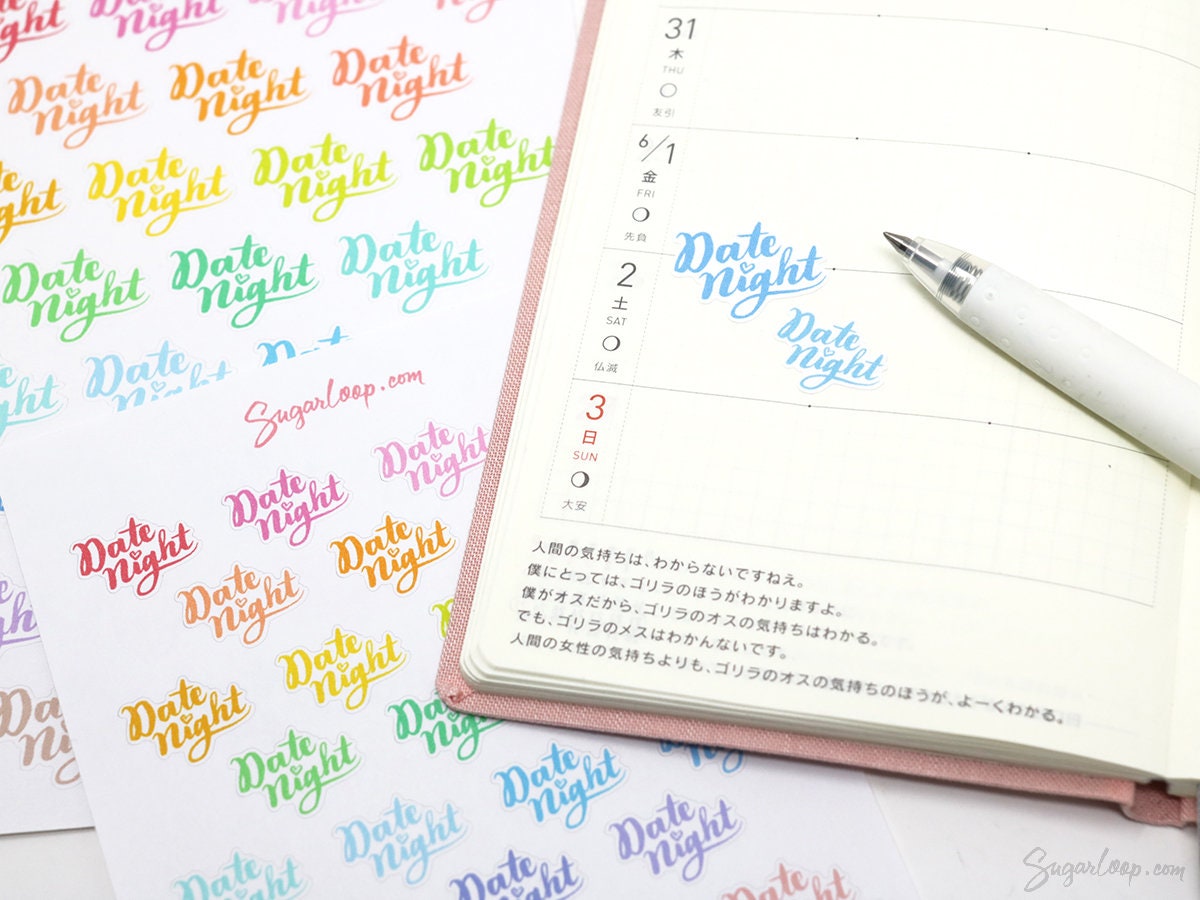 Date Night
Date Night
Date Night
Date Night
Date Night
Date Night
Date Night
Date Night
Date Night
Date Night
Date Night
Date Night
Sugarloop.com
Date Night
Date Night
Date Night
Date Night
Date Night
Date Night
Date Night
Date Night
Date Night
Date Night
Date Night
Date Night
Date Night
Date Night
31
木
THU
友引
6/1
金
FRI
先負
2
土
SAT
仏滅
3
日
SUN
大安
Date
Night
Date
Night
人間の気持ちは、わからないですねえ。
僕にとっては、ゴリラのほうがわかりますよ。
僕がオスだから、ゴリラのオスの気持ちはわかる。
でも、ゴリラのメスはわかんないです。
人間の女性の気持ちよりも、ゴリラのオスの気持ちのほうが、よーくわかる。
Sugarloop.com